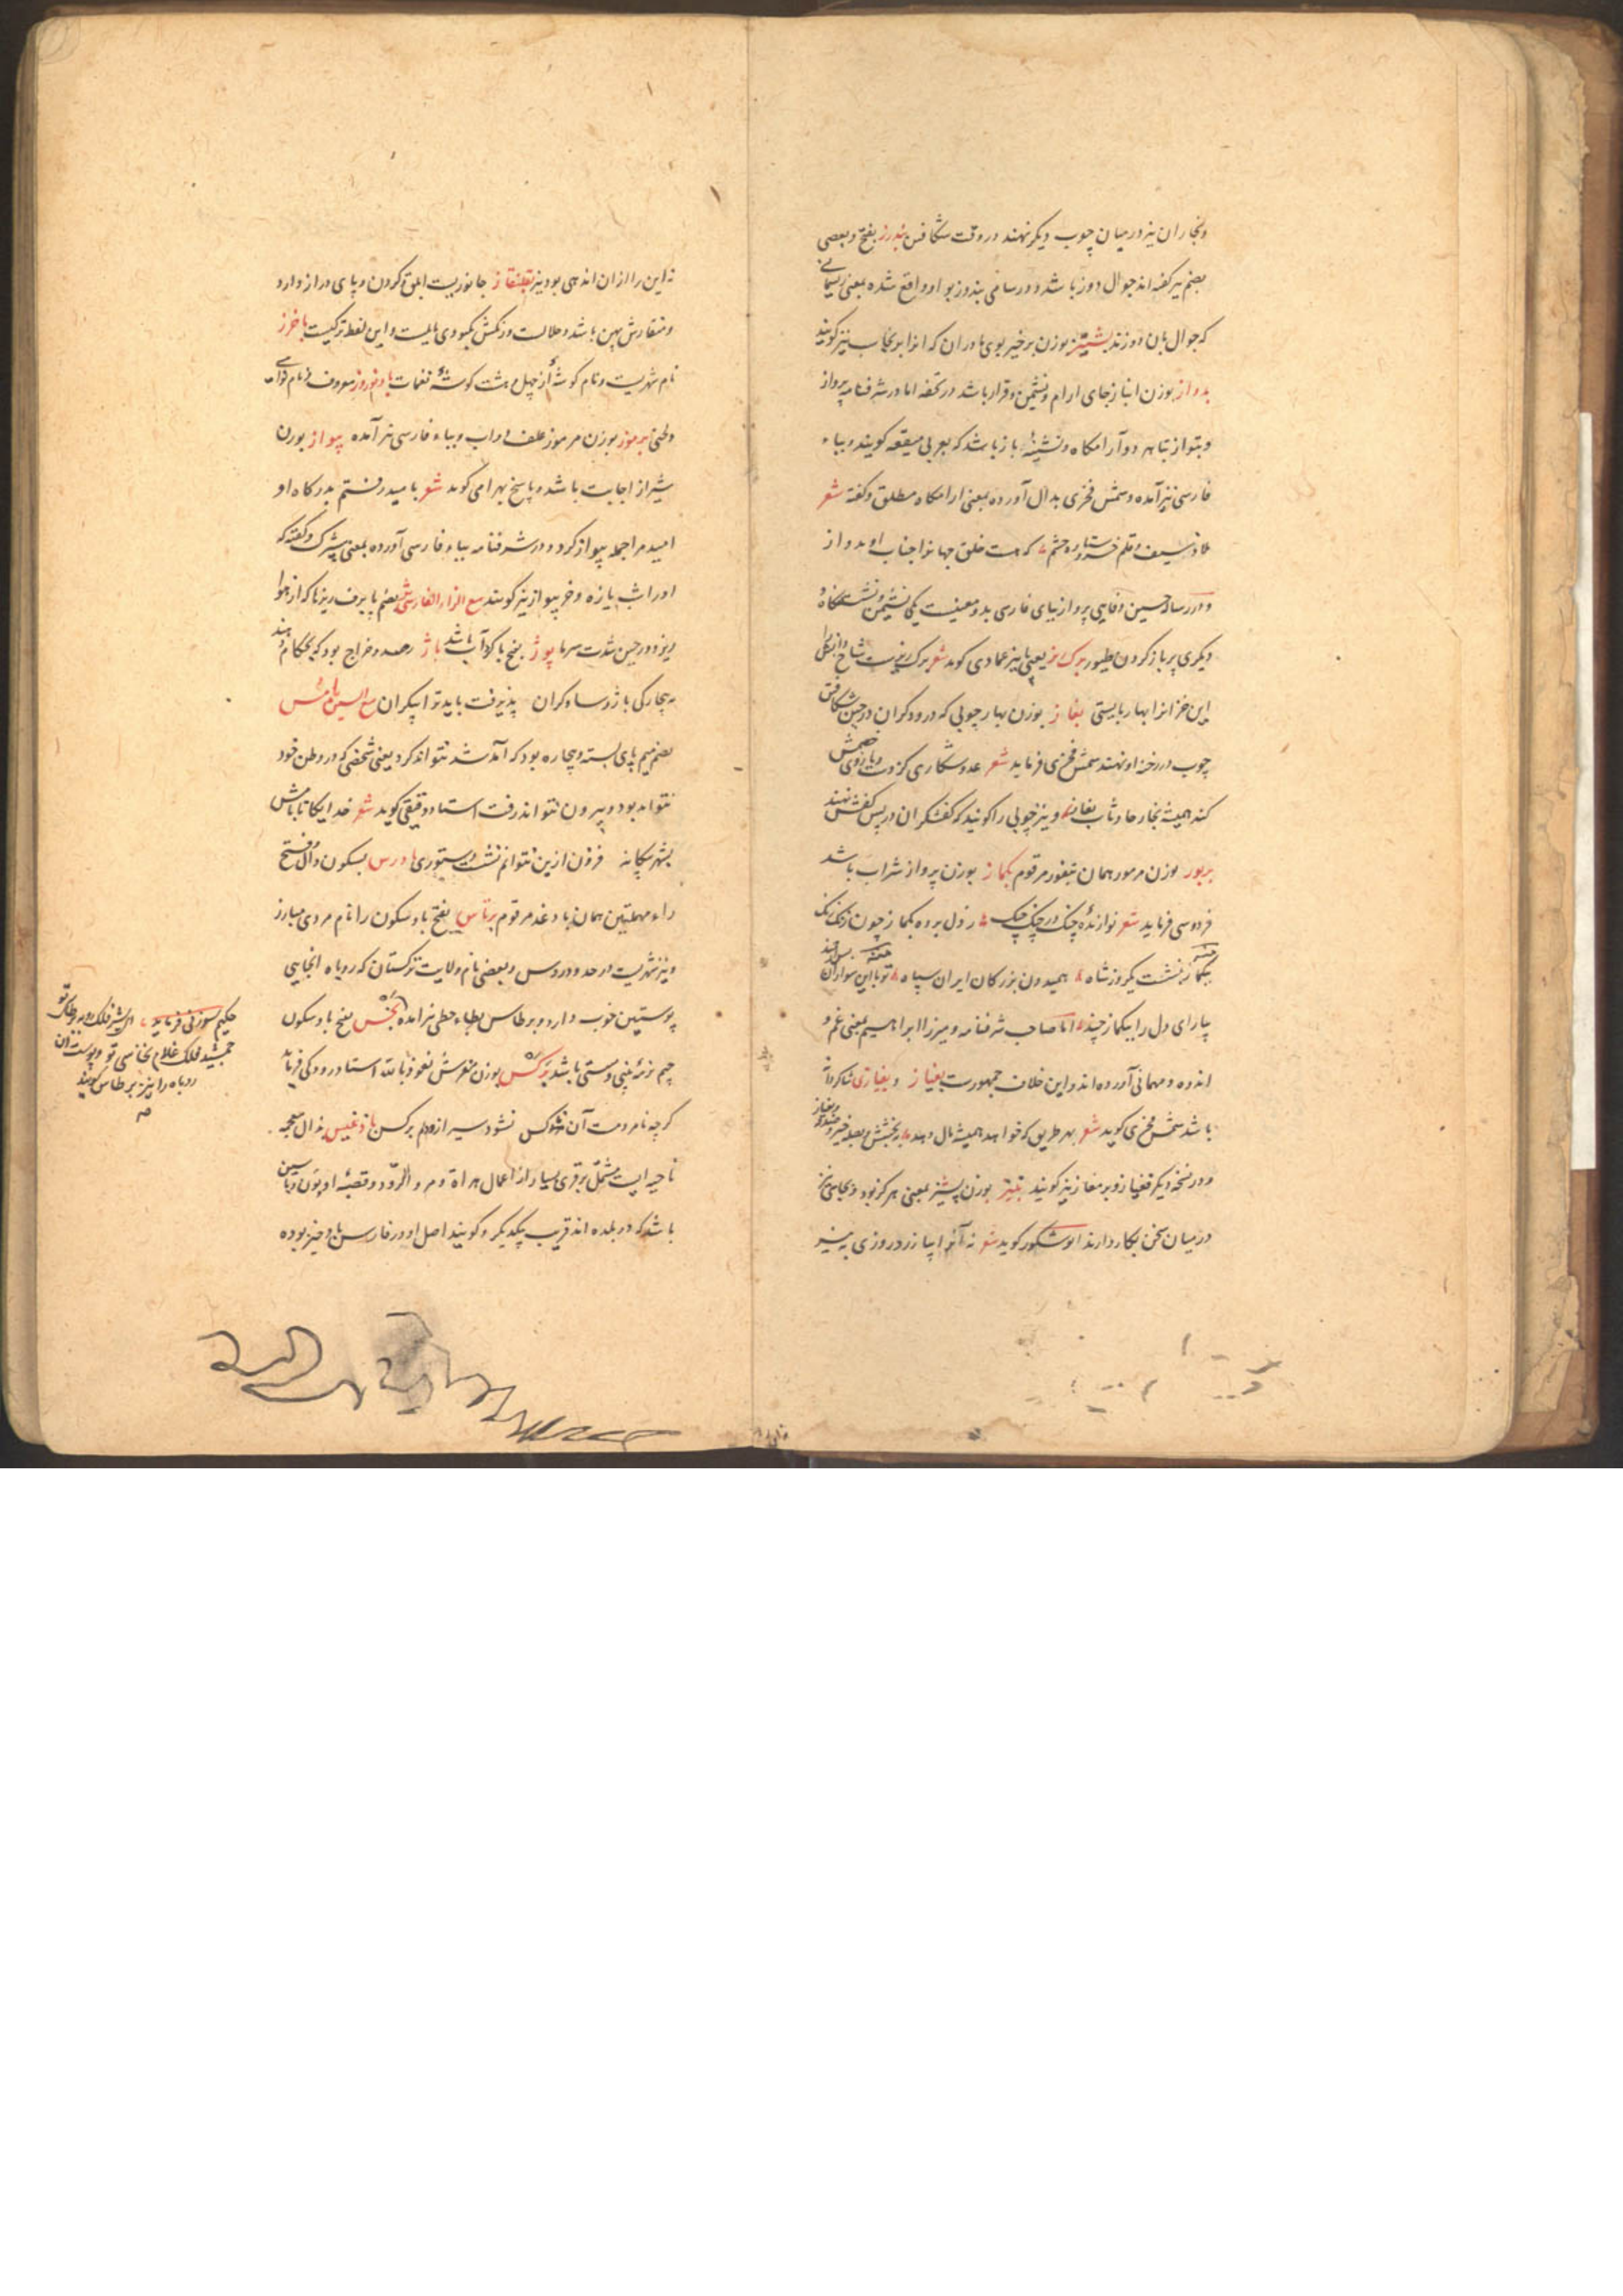 ونجاران نیز در میان چوب دیگر نهند در وقت شکافتن بندرز بفتح و بعضی
بضم نیز گفته اند جوال دوز باشد و در سامی بندوز بواو واقع شده بمعنی ریسمانی
که جوال بان دوزند بشنیز بوزن برخیز بوی مادران که انرا برنجاسب نیز گویند
بدواز بوزن انباز جای ارام و نشیمن و قرار باشد در تحفه اما در شرفنامه پرواز
و بتواز بتا هر دو آرامگاه و نشیمنه باز باشد که بعربی میقعه گویند و بباء
فارسی نیز آمده و شمس فخری بدال آورده بمعنی ارامگاه مطلق و گفته شعر
ملاذ سیف و قلم خسرو ستاره حشم که هست خلق جهانرا جناب او بدواز
و در رساله حسین وفایی پرواز ببای فارسی بدو معنیست یکی نشیمن و نشستگاه و
دیگری پر باز کردن طیور برگ ریز یعنی پاییز عمادی گوید شعر برگ ریزست شاخ دانش را
این خزانرا بهار بایستی بغاز بوزن بهار چوبی که درودگران در حین شکافتن
چوب در رخنه او نهند شمس فخری فرماید شعر عدو شکاری کز دست و بازوی خصمش
کند همیشه نجار حادثات بغاز و نیز چوبی را گویند که کفشگران در پس کفش نهند
بربور بوزن مرمور همان بتفوز مرقوم بگماز بوزن پرواز شراب باشد
فردوسی فرماید شعر نوازنده چنگ در چنگ چنگ ز دل برده بگماز چون زنگ زنگ
ببگماز بنشست یکروز شاه همیدون بزرگان ایران سپاه تو با این سواران
بیارای دل را ببگماز چند اما صاحب شرفنامه و میرزا ابراهیم بمعنی غم و
اندوه و مهمانی آورده اند و این خلاف جمهورست بغیاز و بغیازی شاگردانه
باشد شمس فخری گوید شعر بهر طریق که خواهد همیشه مال دهد به بخشش و بصله خیر و صدقه و بغیاز
و در نسخه دیگر فغیاز و برمغاز نیز گویند بنیز بوزن پشیز بمعنی هرگز بود و بجای نیز
در میان سخن بکار دارند ابو شکور گوید شعر نه آنرا بیازرد روزی به نیز
نه این را از آن اندهی بود نیز بقلنقاز جانوریست ابلق و گردن و پای دراز دارد
و منقارش پهن باشد و حلالست و رنگش بکبودی مایلست و این لفظ ترکیست باخرز
نام شهریست و نام گوشه از چهل و هشت گوشه نغمات بادنوروز معروف و نام نوای
ولحنی برموز بوزن مرموز علف دواب و بباء فارسی نیز آمده پیواز بوزن
شیراز اجابت باشد و پاسخ بهرامی گوید شعر بامید رفتم بدرگاه او
امید مرا جمله پیواز کرد و در شرفنامه بباء فارسی آورده بمعنی شب پرک و گفته که
اورا شب یازه و خرپیواز نیز گویند مع الزاء الفارسی بش بضم با برف ریزها که از هوا
ریزد در حین شدت سرما پوژ بفتح با گرد آب باشد باژ رصد و خراج بود که بحکام دهند
به بیچارگی باژ و ساو گران پذیرفت باید ترا بیکران مع السین پامس
بضم میم پای بسته و بیچاره بود که آمد شد نتواند کرد یعنی شخصی که در وطن خود
نتواند بود و بیرون نتواند رفت استاد دقیقی گوید شعر خدایگانا بامس
بشهر بیگانه فزون ازین نتوانم نشست دستوری بادرس بسکون دال و فتح
راء مهملتین همان بادغد مرقوم برتاس بفتح با و سکون را نام مردی مبارز
و نیز شهریست در حدود روس و بعضی نام ولایت ترکستان که روباه انجایی
پوستین خوب دارد و برطاس بطاء حطی نیز امده بخس بفتح با و سکون
باشد برگس بوزن نعوذ بالله استاد رودکی فرماید
گرچه نامردمست آن ناکس نشود سیر ازو دلم برگس بادغیس بذال معجمه
ناحیه ایست مشتمل بر قری بسیار از اعمال هراة و مرو الرود و قصبه او بون و بامیین
باشد که دو بلده اند قریب یکدیگر و گویند اصل او در فارسی بادخیز بوده
حکیم سوزنی فرماید ای شیر فلک روبه برطاسی تو
جمشید فلک غلام نخاسی تو و پوست آن
روباه را نیز برطاس گویند